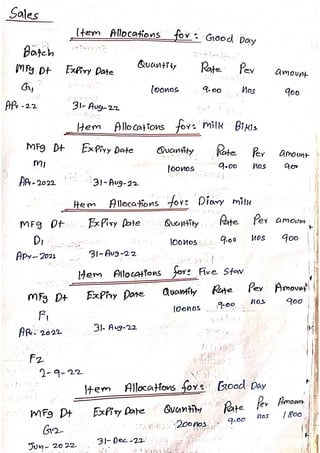 Sales
Item Allocations for: Good Day
Batch
Mfg Dt Expiry Date Quantity Rate Per amount
G1 100nos 9.00 nos 900
Apr-22 31-Aug-22
Item Allocations for: milk Bikis
Mfg Dt Expiry Date Quantity Rate Per amount
M1 100nos 9.00 nos 900
Apr-2022 31-Aug-22
Item Allocations for: Diary milk
Mfg Dt Expiry Date Quantity Rate Per amount
D1 100nos 9.00 nos 900
Apr-2022 31-Aug-22
Item Allocations for: Five Star
Mfg Dt Expiry Date Quantity Rate Per Amount
F1 100nos 9.00 nos 900
Apr-2022 31-Aug-22
F2
2-9-22
Item Allocations for: Good Day
Mfg Dt Expiry Date Quantity Rate Per Amount
G2 200nos 9.00 nos 1800
Jun-2022 31-Dec-22